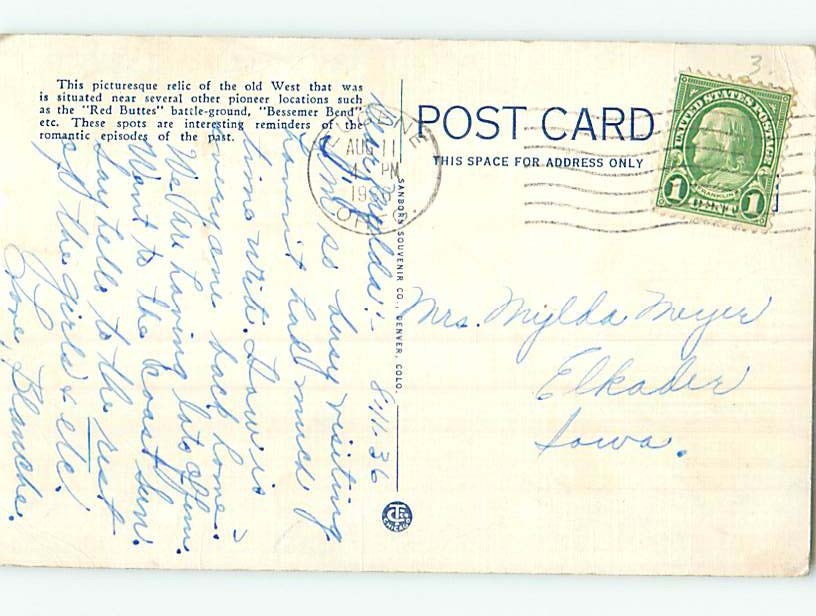 This picturesque relic of the old West that was
is situated near several other pioneer locations such
as the "Red Buttes" battle-ground, "Bessemer Bend"
etc. These spots are interesting reminders of the
romantic episodes of the past.
POST CARD
THIS SPACE FOR ADDRESS ONLY
UNITED STATES POSTAGE
FRANKLIN
1 CENT 1
3
AUG 11
4 PM
19
SANBORN SOUVENIR CO., DENVER, COLO.
CT
CHICAGO
Dear Mylda:- 8-11-36
I'm so busy visiting
haven't had much
time write. How is
everyone back home?
We are having lots of fun.
Went to the coast Sun.
Say hello to the rest
of the girls & etc.
Love, Blanche.
Mrs. Mylda Meyer
Elkader
Iowa.